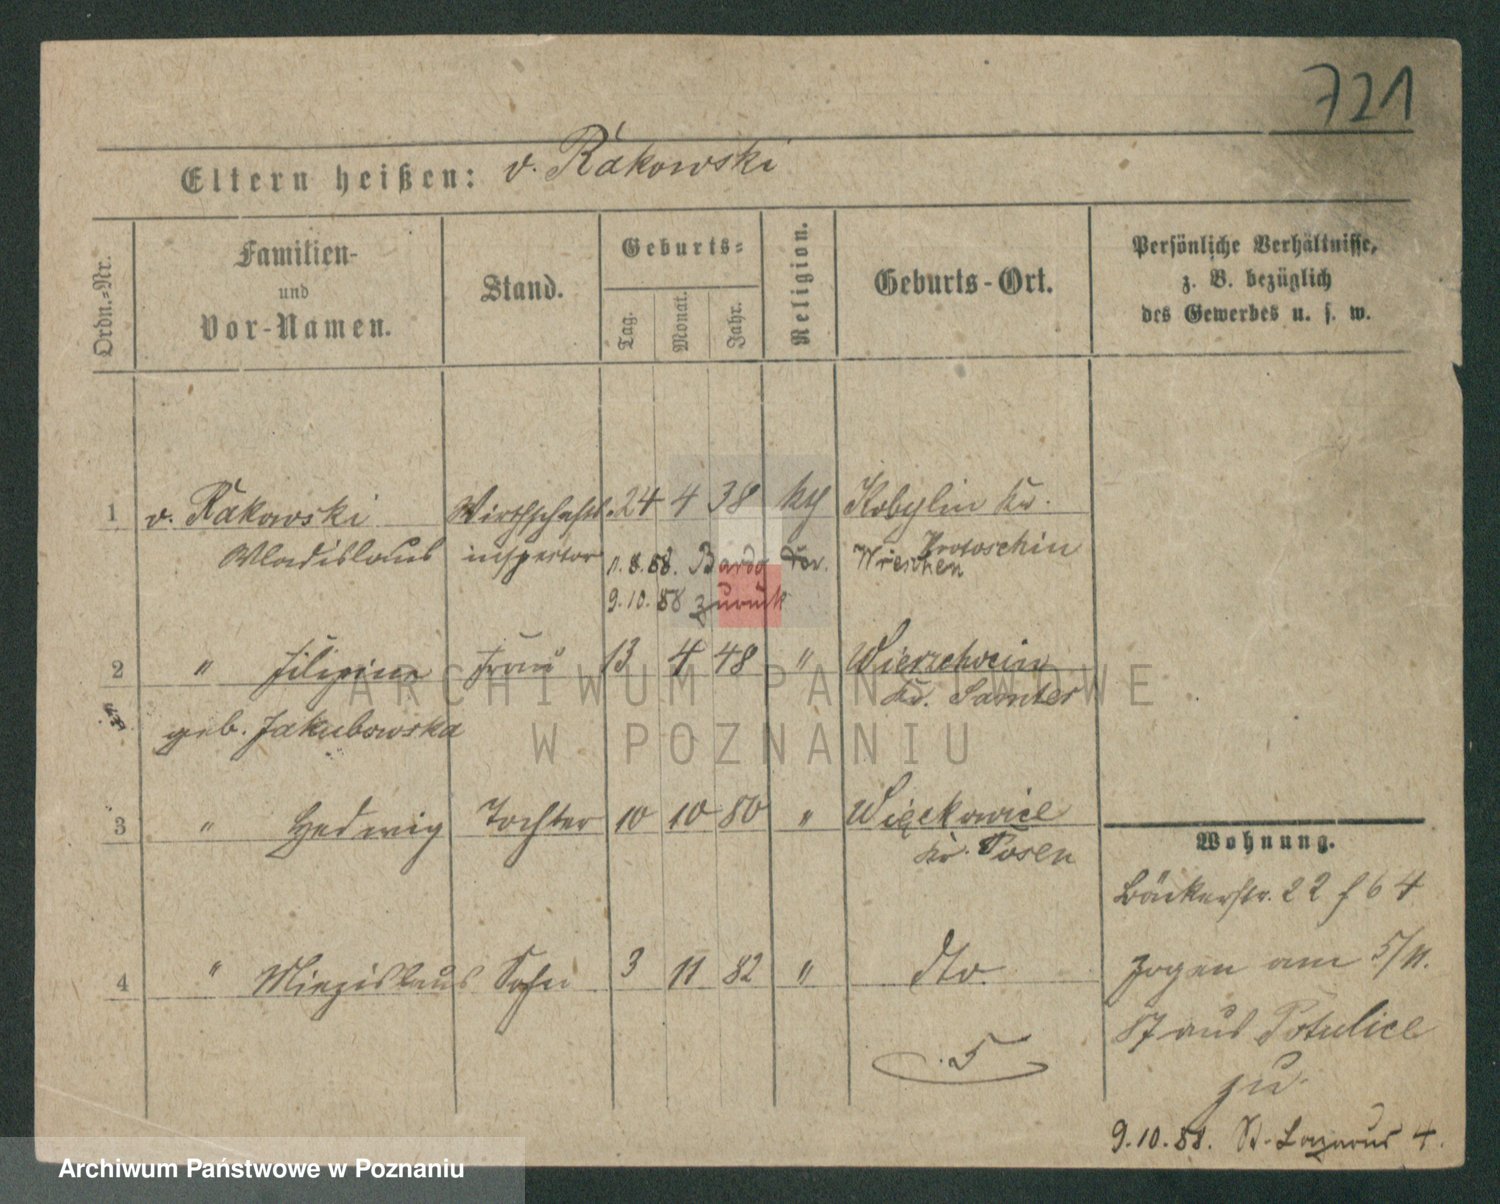 721
Eltern heißen: v. Rakowski
Ordn.-Nr.
Familien-
und
Vor-Namen.
Stand.
Geburts-
Tag.
Monat.
Jahr.
Religion.
Geburts-Ort.
Persönliche Verhältnisse,
z. B. bezüglich
des Gewerbes u. s. w.
1 v. Rakowski Wirthschafts 24 4 38 kth Kobylin Kr.
Wladislaus inspector Krotoschin
11.8.88. Bardo Kr. Wreschen
9.10.88 zurück
2 " Filipine Frau 13 4 48 " Wierzchocin
Kr. Samter
geb. Jakubowska
3 " Hedwig Tochter 10 10 80 " Więckowice
Kr. Posen
4 " Miezislaus Sohn 3 11 82 " dto.
5
Wohnung.
Bäckerstr. 22 f 64
zogen am 5/11.
87 aus Potulice
zu.
9.10.88. St. Lazarus 4.
ARCHIWUM PAŃSTWOWE
W POZNANIU
Archiwum Państwowe w Poznaniu